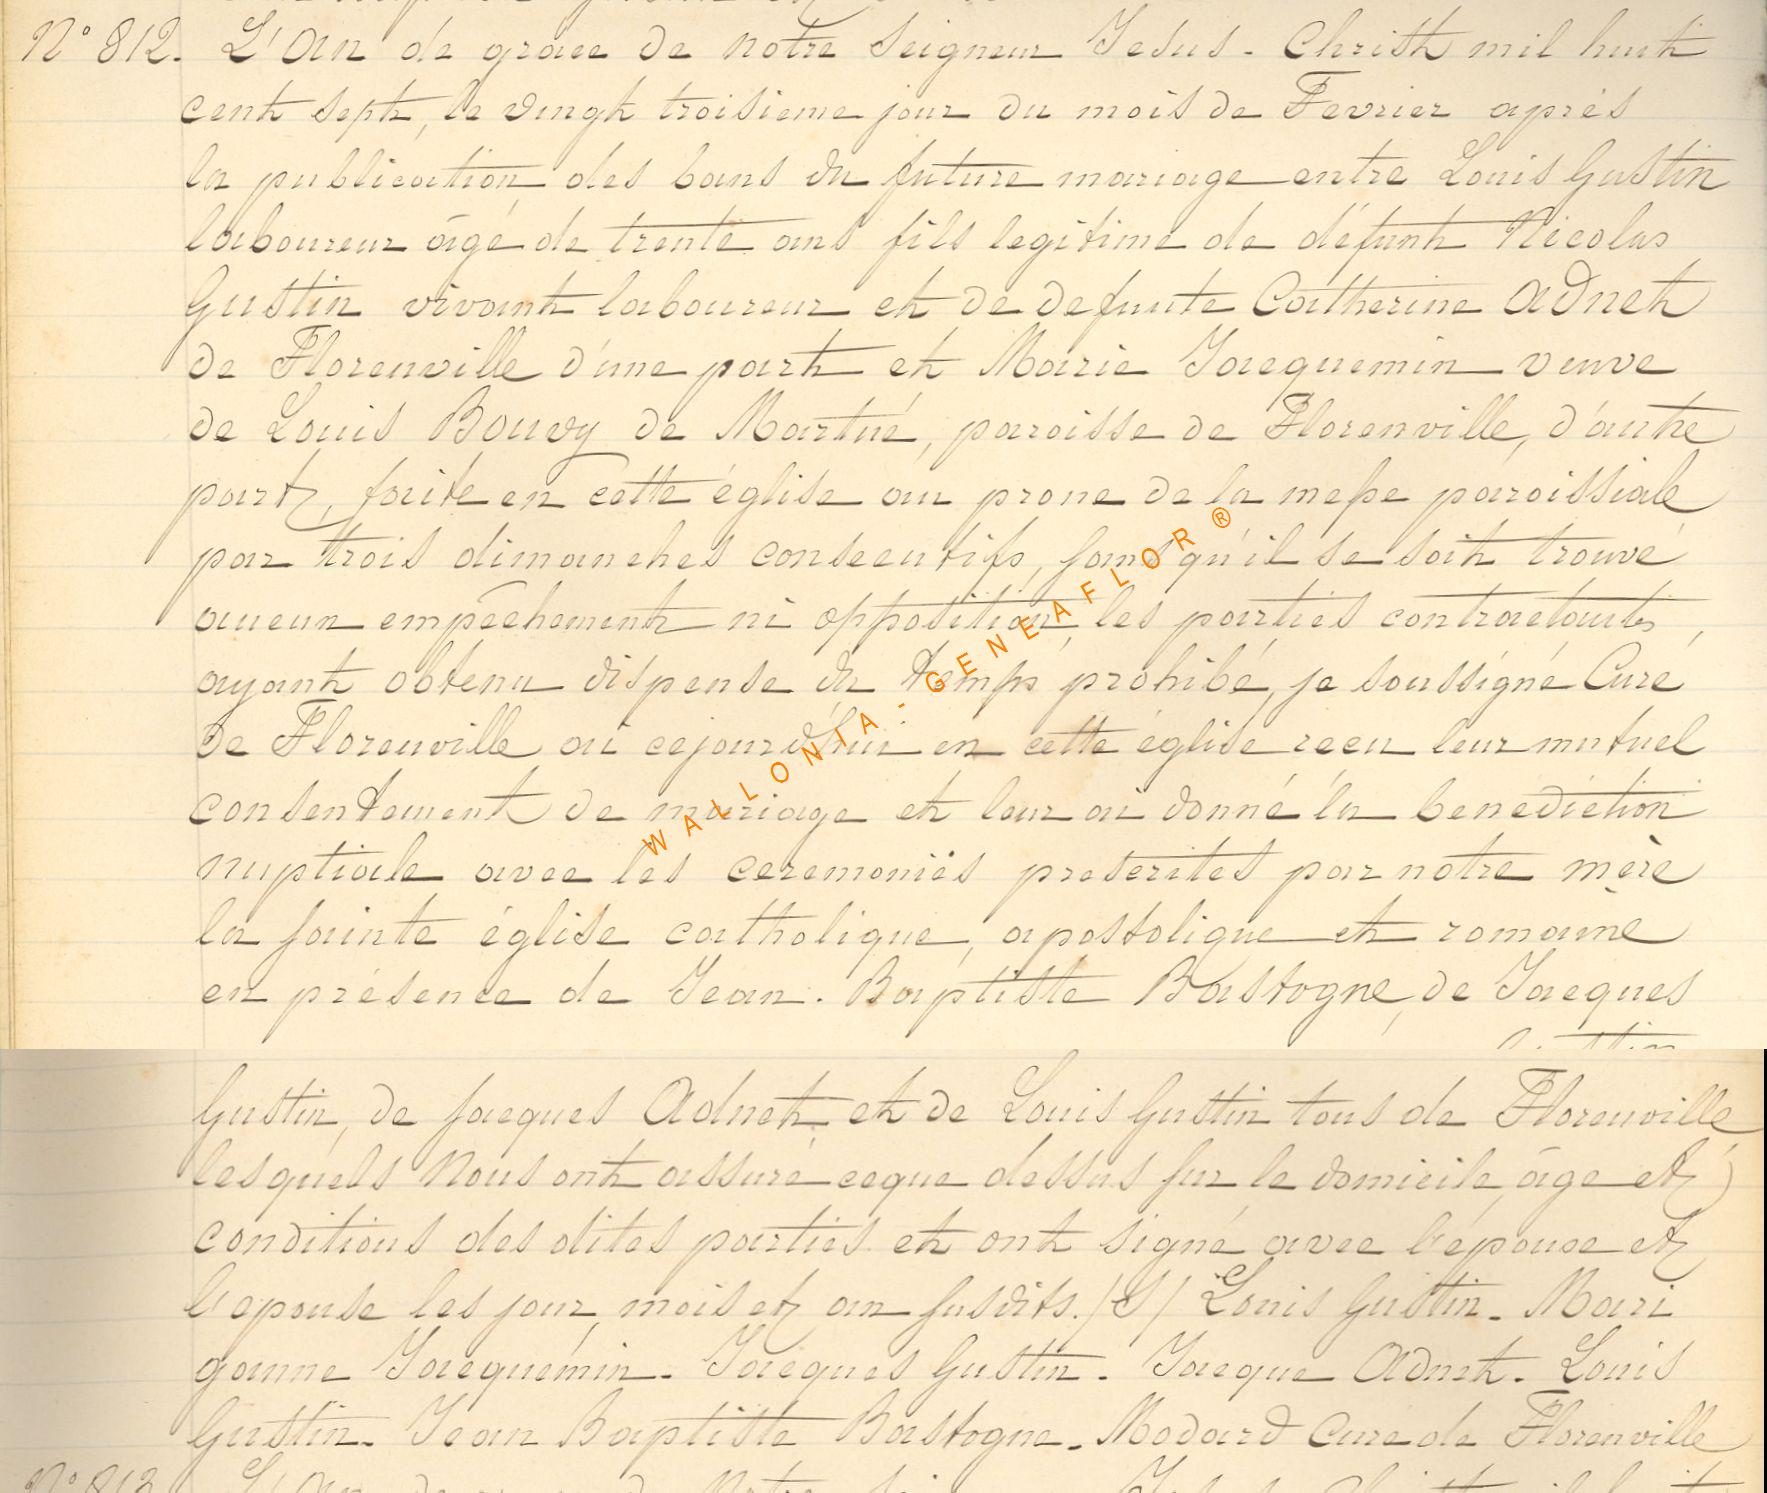 N° 812. L'An de grace de notre Seigneur Jesus-Christ mil huit
cent sept, le vingt troisieme jour du mois de Fevrier après
la publication des bans du future mariage entre Louis Gustin
laboureur âgé de trente ans fils legitime de défunt Nicolas
Gustin vivant laboureur et de defunte Catherine Adnet
de Florenville d'une part et Marie Jacquemin veuve
de Louis Bouvy de Martué, paroisse de Florenville, d'autre
part, faite en cette église au prone de la messe paroissiale
par trois dimanches consecutifs, sans qu'il se soit trouvé
aucun empêchement ni opposition, les parties contractantes,
ayant obtenu dispense du temps prohibé, je soussigné Curé
de Florenville ai cejourd'hui en cette église recu leur mutuel
consentement de mariage et leur ai donné la benediction
nuptiale avec les ceremonies prescrites par notre mère
la sainte église catholique, apostolique et romaine
en présence de Jean-Baptiste Bastogne, de Jacques
Gustin, de Jacques Adnet, et de Louis Gustin tous de Florenville
lesquels Nous ont assuré ceque dessus sur le domicile, âge et
conditions des dites parties et ont signé avec l'épouse et
l'epouse les jour, mois et an susdits. /S/ Louis Gustin - Mari
ganne Jacquemin - Jacques Gustin - Jacque Adnet - Louis
Gustin - Jean Baptiste Bastogne - Modard Cure de Florenville
N° 813
WALLONIA - GENEAFLOR ®